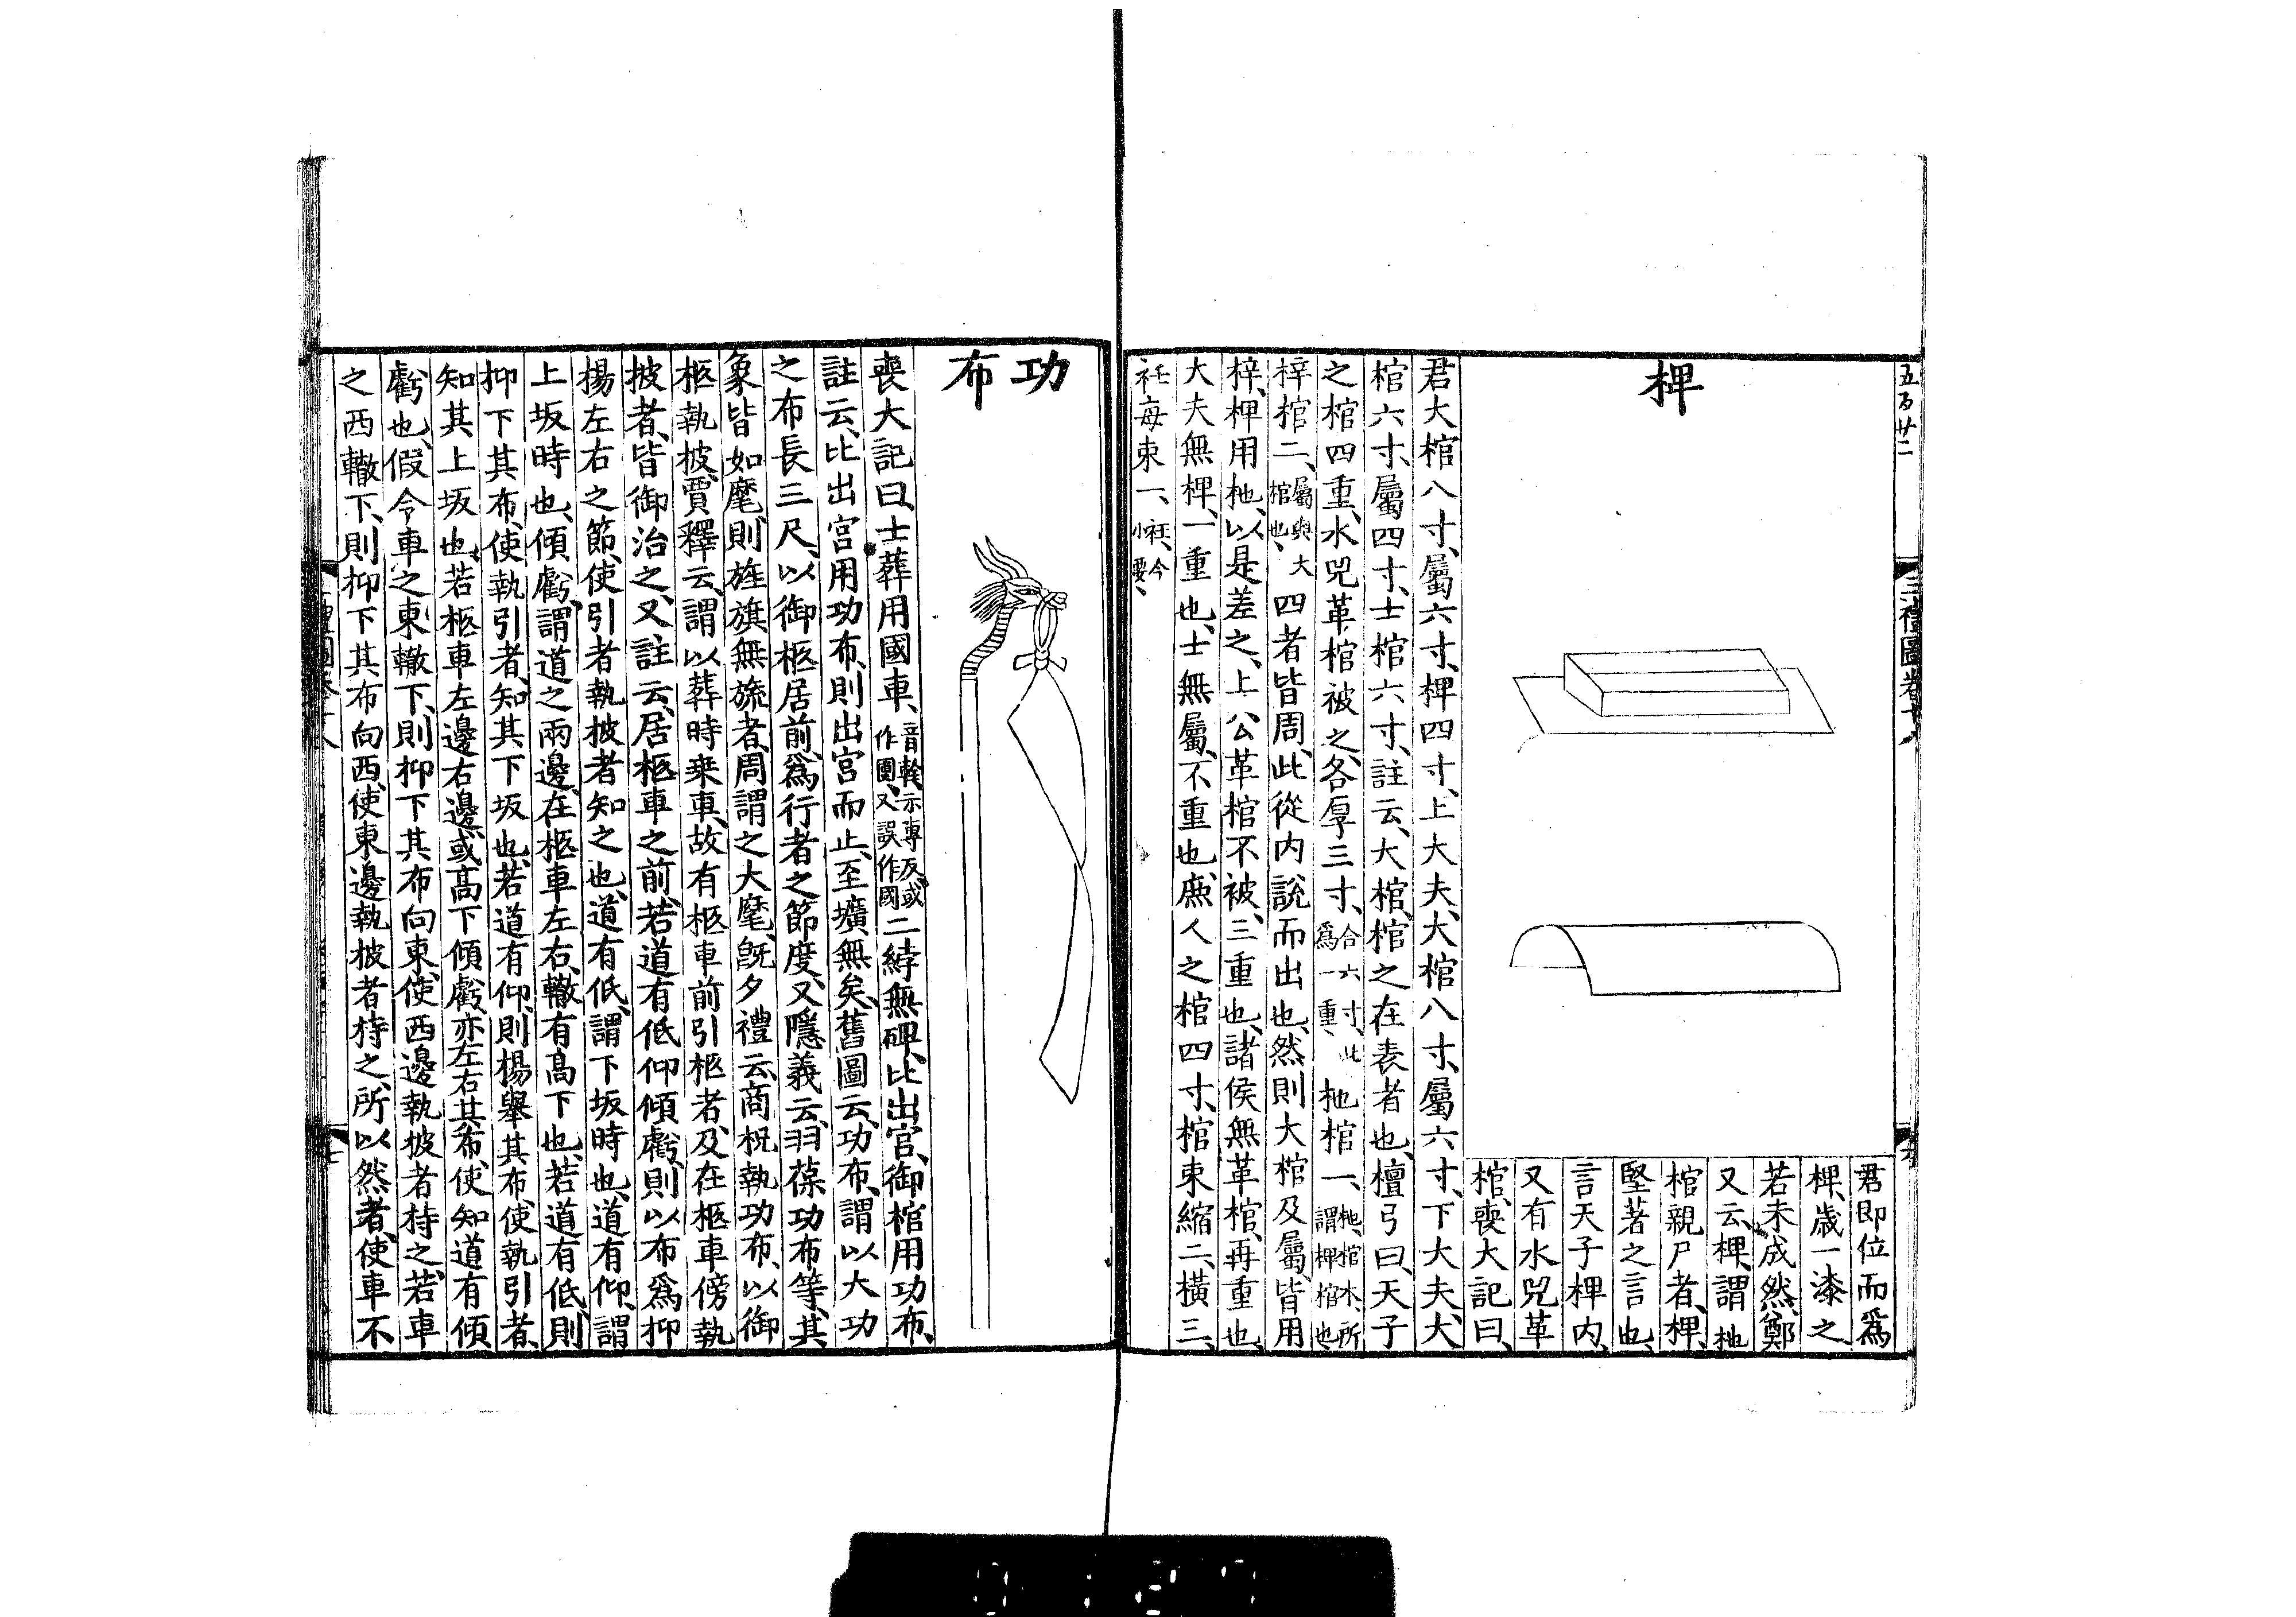 五百廿一
三禮圖卷十八
椑
君即位而爲
椑、歲一漆之
若未成然、鄭
又云、椑、謂杝
棺親尸者、椑、
堅著之言也、
言天子椑内、
又有水兕革
棺、喪大記曰、
君大棺八寸、屬六寸、椑四寸、上大夫、大棺八寸、屬六寸、下大夫、大
棺六寸、屬四寸、士棺六寸、註云、大棺、棺之在表者也、檀弓曰、天子
之棺四重、水兕革棺被之、各厚三寸、合六寸、此爲一重、杝棺一、杝、棺木、所謂椑棺也、
梓棺二、屬與大棺也、四者皆周、此從内說而出也、然則大棺及屬、皆用
梓、椑用杝、以是差之、上公革棺不被、三重也、諸侯無革棺、再重也、
大夫無椑、一重也、士無屬、不重也、庶人之棺四寸、棺束縮二、橫三、
衽每束一、衽、今小要、
功布
喪大記曰、士葬用國車、音輇、示專反、或作團、又誤作國二綍無碑、比出宮、御棺用功布、
註云、比出宮用功布、則出宮而止、至壙無矣、舊圖云、功布、謂以大功
之布長三尺、以御柩居前、爲行者之節度、又隱義云、羽葆功布等、其
象皆如麾、則旌旗無旒者、周謂之大麾、旣夕禮云、商祝執功布、以御
柩執披、賈釋云、謂以葬時乗車、故有柩車前引柩者、及在柩車傍執
披者、皆御治之、又註云、居柩車之前、若道有低仰傾虧、則以布爲抑
揚左右之節、使引者執披者知之也、道有低、謂下坂時也、道有仰、謂
上坂時也、傾虧、謂道之兩邊、在柩車左右、轍有高下也、若道有低、則
抑下其布、使執引者、知其下坂也、若道有仰、則揚舉其布、使執引者、
知其上坂也、若柩車左邊右邊、或高下傾虧、亦左右其布、使知道有傾
虧也、假令車之東轍下、則抑下其布向東、使西邊執披者持之、若車
之西轍下、則抑下其布向西、使東邊執披者持之、所以然者、使車不